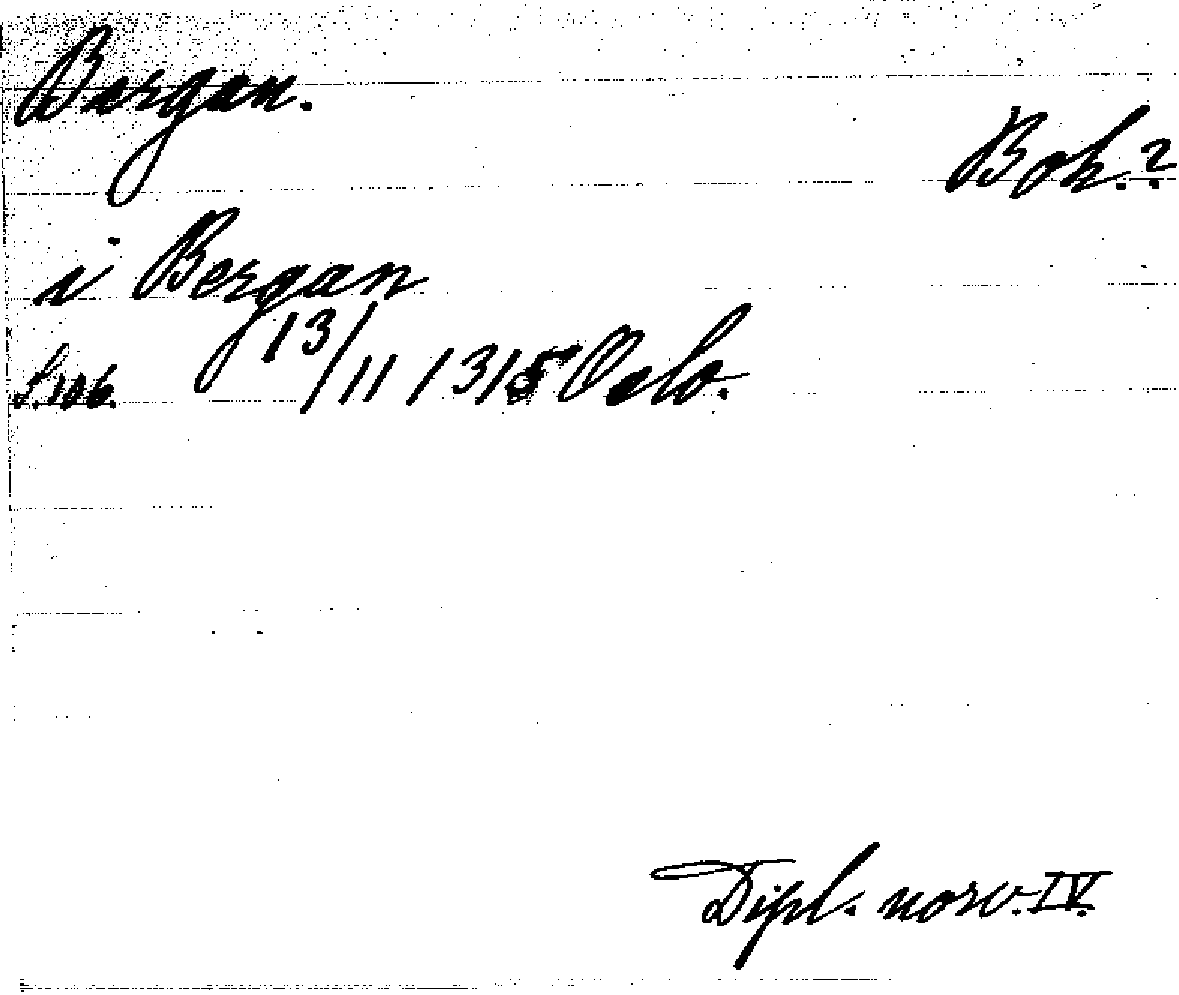 Bergan.
Boh.?
i Bergan
S. 106. 13/11 1315 Oslo.
Dipl. norv. IV.